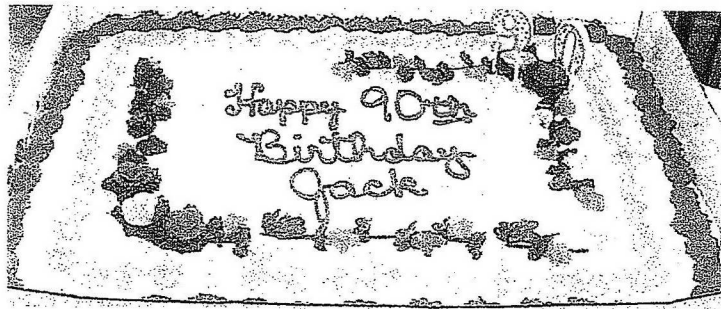 90
Happy 90th
Birthday
Jack